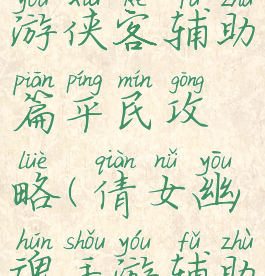 yóu xiá kè fǔ zhù
游侠客辅助
piān píng mín gōng
篇平民攻
lüè qiàn nǚ yōu
略(倩女幽
hún shǒu yóu fǔ zhù
魂手游辅助